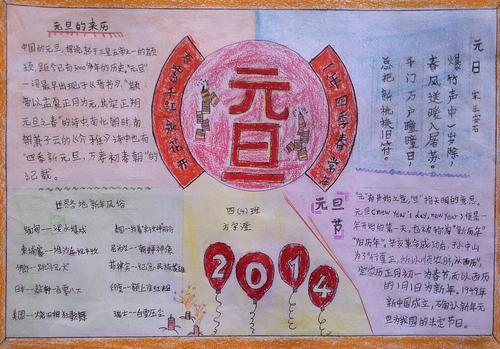 元旦的来历
中国的元旦，据说起于三皇五帝之一的颛
顼，距今已有3000多年的历史。"元旦"
一词最早出现于《晋书》："颛
帝以孟夏正月为元，其实正朔
元旦之春"的诗中。南北朝时，南
朝萧子云的《介雅》诗中也有
"四季新元旦，万寿初春朝"的
记载。
万紫千红永花开
元旦
一年四季春常在
元日 宋 王安石
爆竹声中一岁除，
春风送暖入屠苏。
千门万户曈曈日，
总把新桃换旧符。
世界各地新年风俗
缅甸——泼水嬉戏
日本——敲钟一百零八下
四(4)班
2014
元旦节
"元"有开始之意，"旦"指天明的意思。
元旦(New Year's day, new year)便是一
年开始的第一天，也被称为"新历年"
"阳历年"。辛亥革命成功后，孙中山
为了"行夏正，所以顺农时，从西历"，
定农历正月初一为春节，而以西历
的1月1日为新年。1949年
新中国成立，正确认新年元
旦为我国的法定节日。